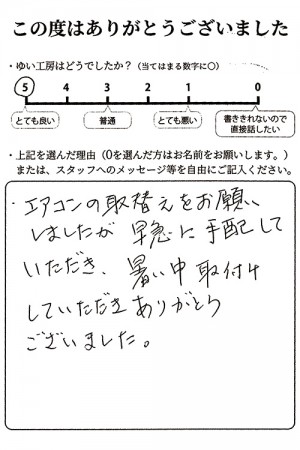 この度はありがとうございました
・ゆい工房はどうでしたか？（当てはまる数字に○）
5 4 3 2 1 0
とても良い 普通 とても悪い 書ききれないので
直接話したい
・上記を選んだ理由（0を選んだ方はお名前をお願いします。）
または、スタッフへのメッセージ等を自由にご記入ください。
・エアコンの取替えをお願い
しましたが 早急に手配して
いただき、暑い中取付け
していただきありがとう
ございました。